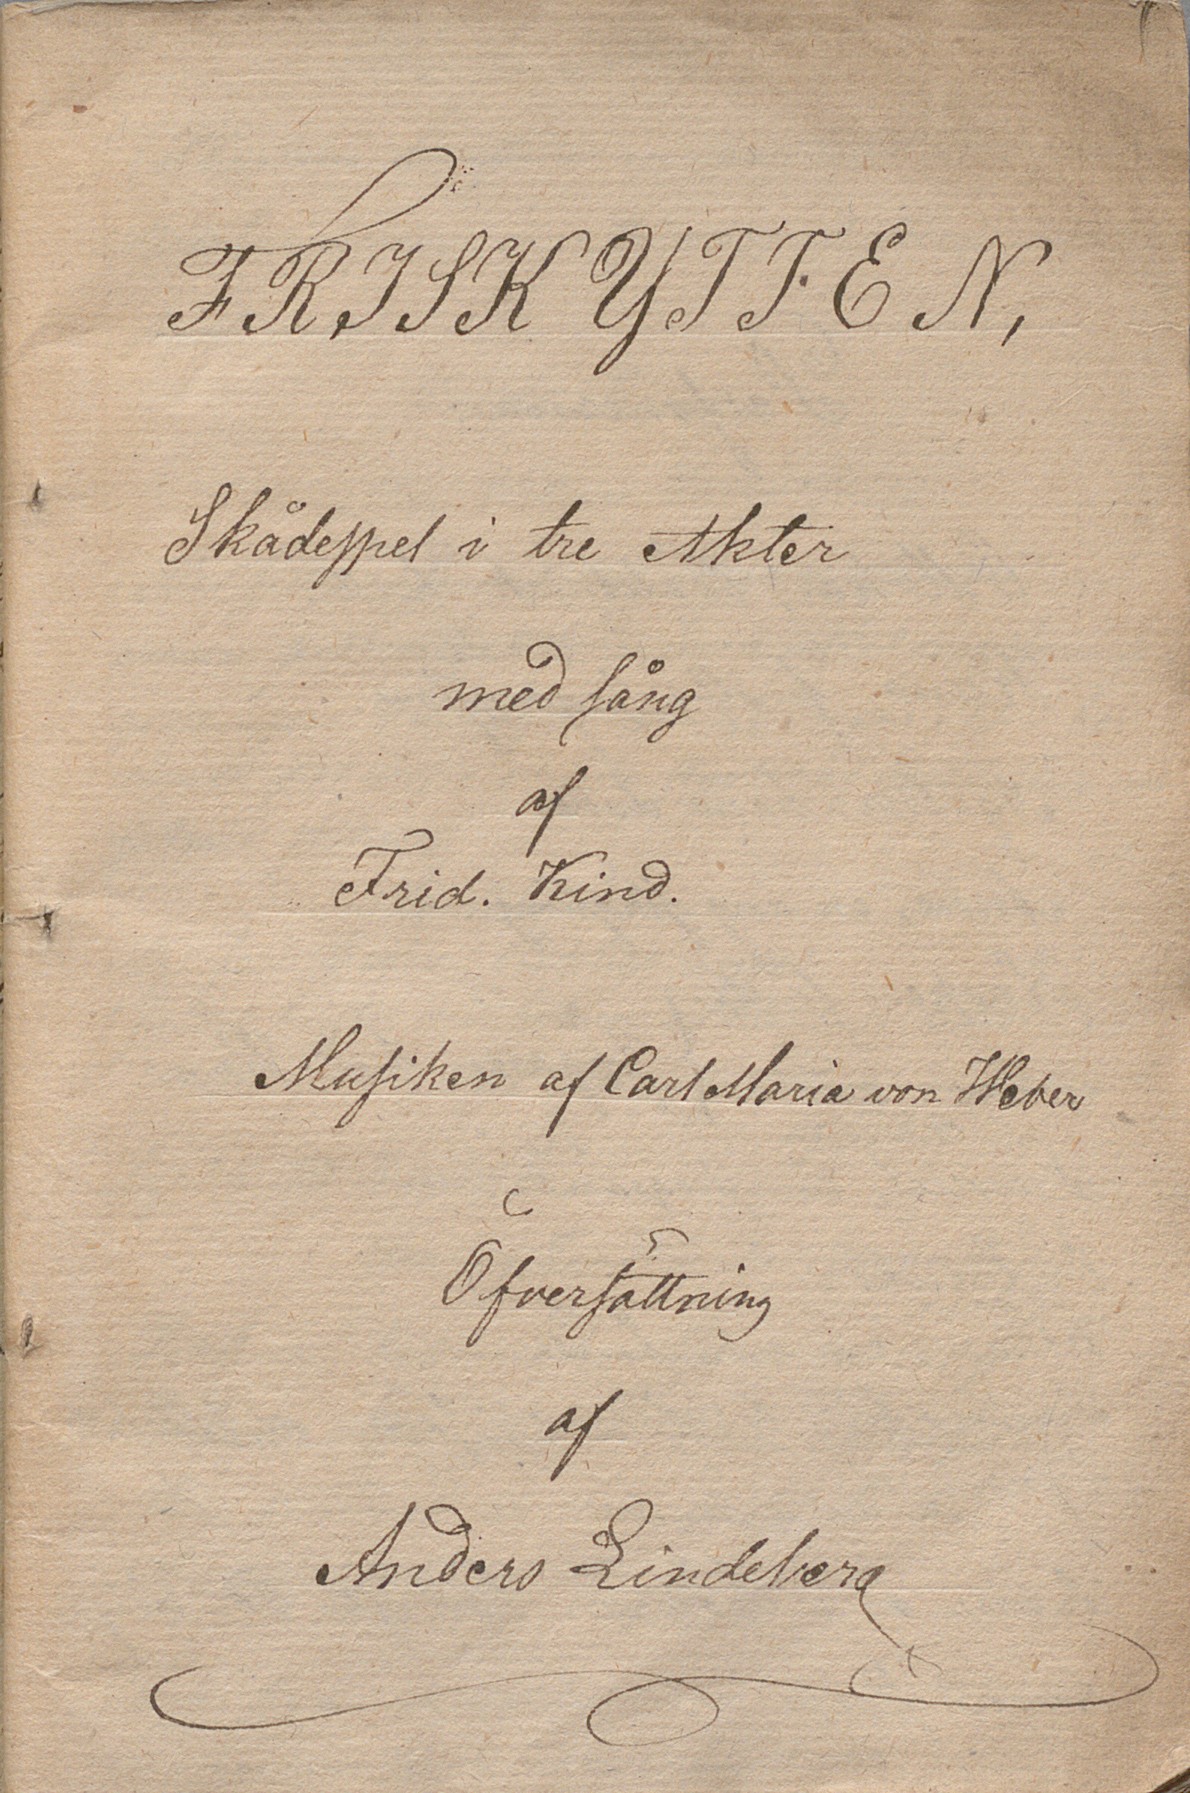 FRISKYTTEN,
Skådespel i tre Akter
med sång
af
Frid. Kind.
Musiken af Carl Maria von Weber
Öfversättning
af
Anders Lindeberg